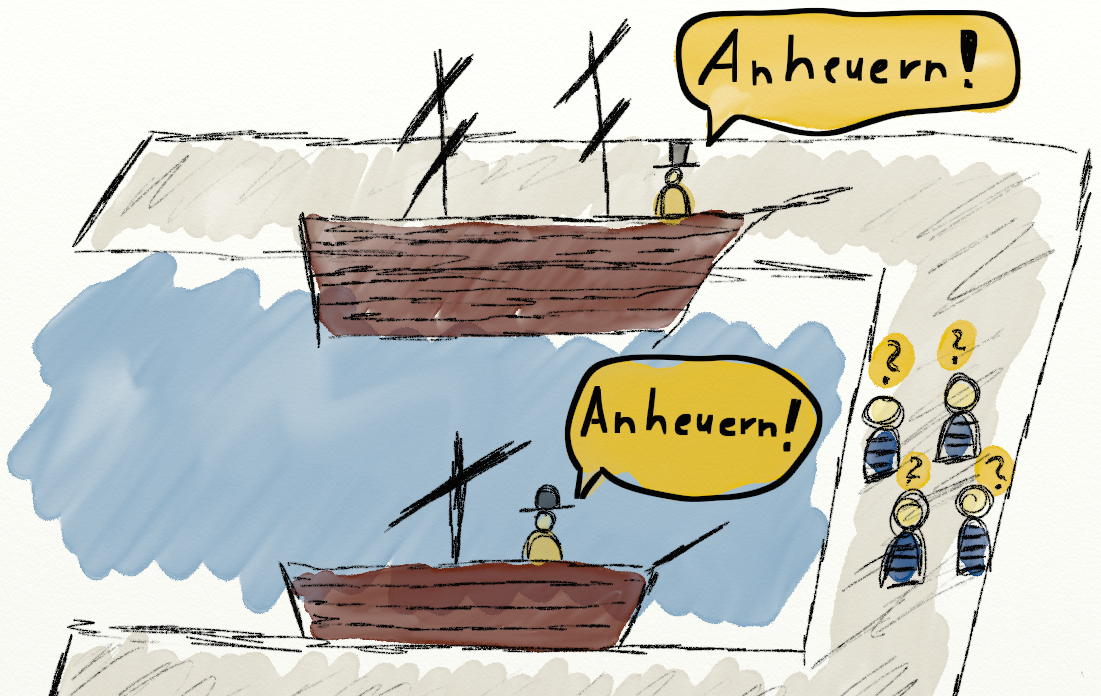 Anheuern!
Anheuern!
?
?
?
?